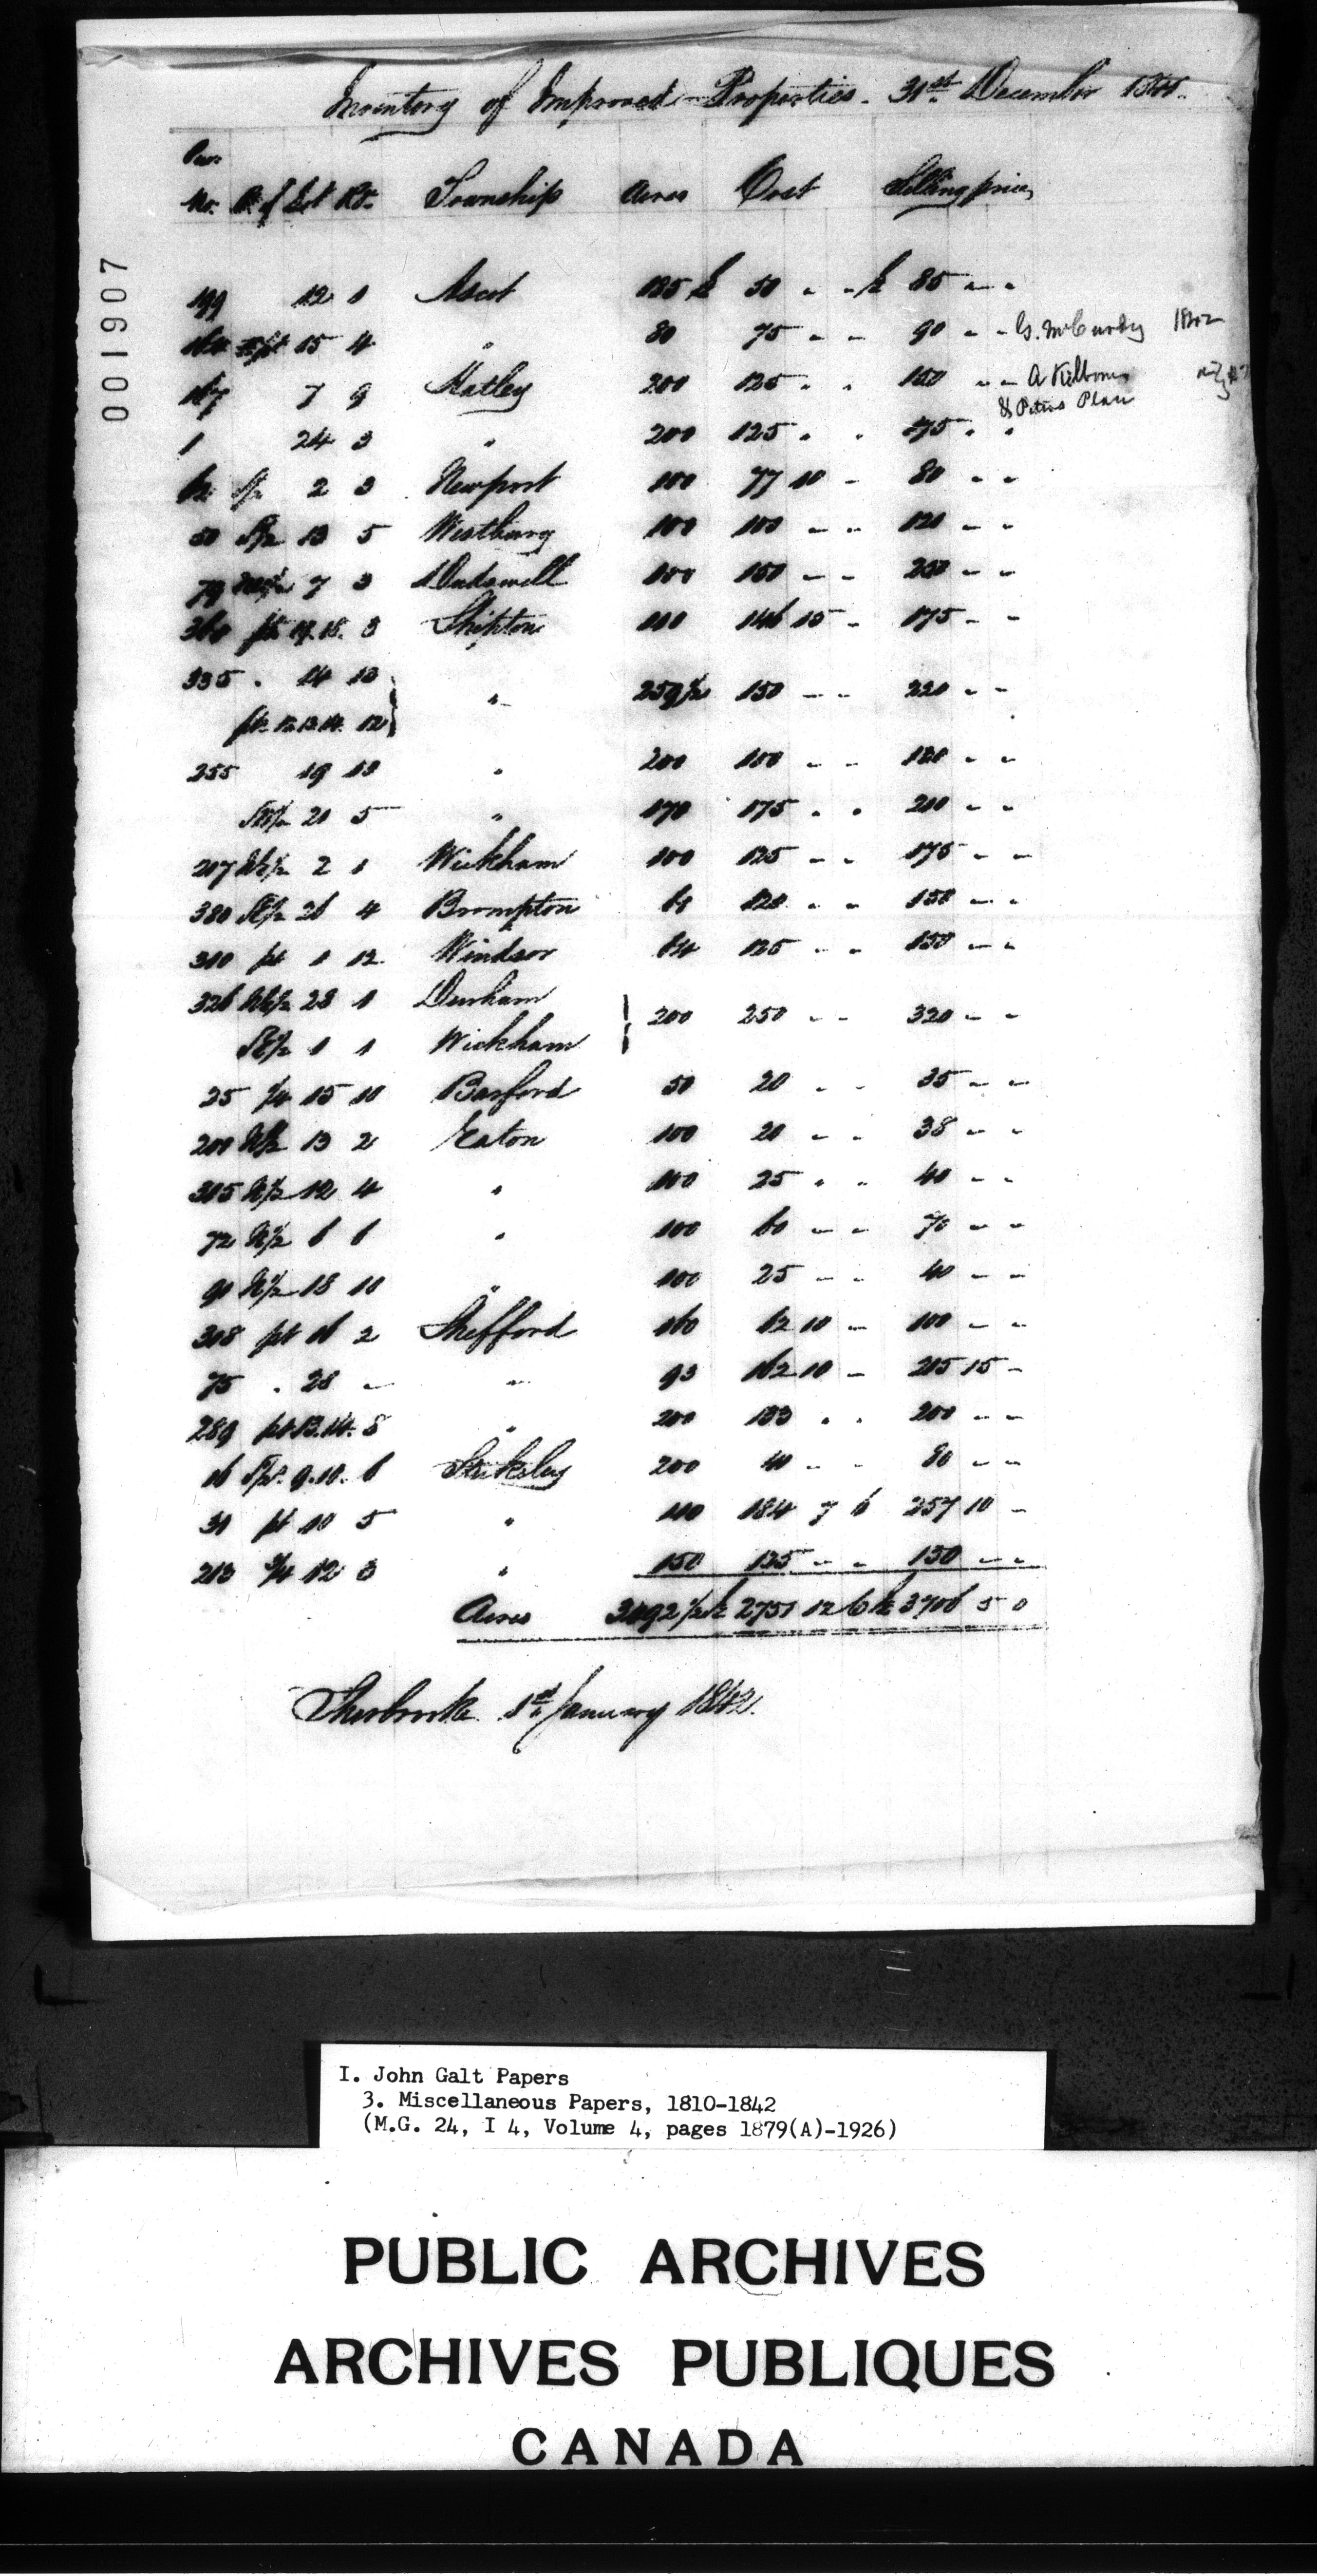 Inventory of Improved Properties. 31st December 1841.
Pur.
No. Pt of Lot Ra. Township Acres Cost Selling price
199 12 1 Ascot 125 £ 50 - - £ 85 - -
164 pt 15 4 " 80 75 - - 90 - - G. McCurdy
167 7 9 Hatley 200 125 - - 150 - - A Kilborn
& Peters Place
1 24 3 " 200 125 - - 175 - -
S½ 2 3 Newport 100 77 10 - 80 - -
50 S½ 13 5 Westbury 100 100 - - 120 - -
79 7 3 Dudswell 100 150 - - 230 - -
360 pt 17.18. 3 Shipton 110 146 15 - 175 - -
335 . 14 13 } " 259½ 150 - - 220 - -
pt. 12.13.14. 12 }
255 19 13 " 200 100 - - 120 - -
SW½ 20 5 " 170 175 - - 210 - -
217 NE½ 2 1 Wickham 100 125 - - 175 - -
380 SE½ 26 4 Brompton 120 - - 150 - -
310 pt 1 12 Windsor 84 125 - - 150 - -
326 NE½ 28 1 Durham } 200 250 - - 320 - -
SE½ 1 1 Wickham }
25 ¼ 15 10 Barford 50 20 - - 35 - -
200 N½ 13 2 Eaton 100 20 - - 38 - -
305 N½ 12 4 " 100 25 - - 40 - -
72 N½ 6 6 " 100 60 - - 70 - -
90 N½ 18 10 " 100 25 - - 40 - -
308 pt 16 2 Shefford 160 62 10 - 100 - -
75 . 28 - " 93 162 10 - 215 15 -
289 pt 13.14. 8 " 200 133 - - 200 - -
16 9.10. 6 Stukeley 200 40 - - 80 - -
31 pt 10 5 " 110 184 7 6 257 10 -
213 ¾ 12 3 " 150 125 - - 150 - -
Acres 3492½ £ 2751 12 6 £ 3706 5 0
Sherbrooke 1st January 1842.
001907
I. John Galt Papers
3. Miscellaneous Papers, 1810-1842
(M.G. 24, I 4, Volume 4, pages 1879(A)-1926)
PUBLIC ARCHIVES
ARCHIVES PUBLIQUES
CANADA